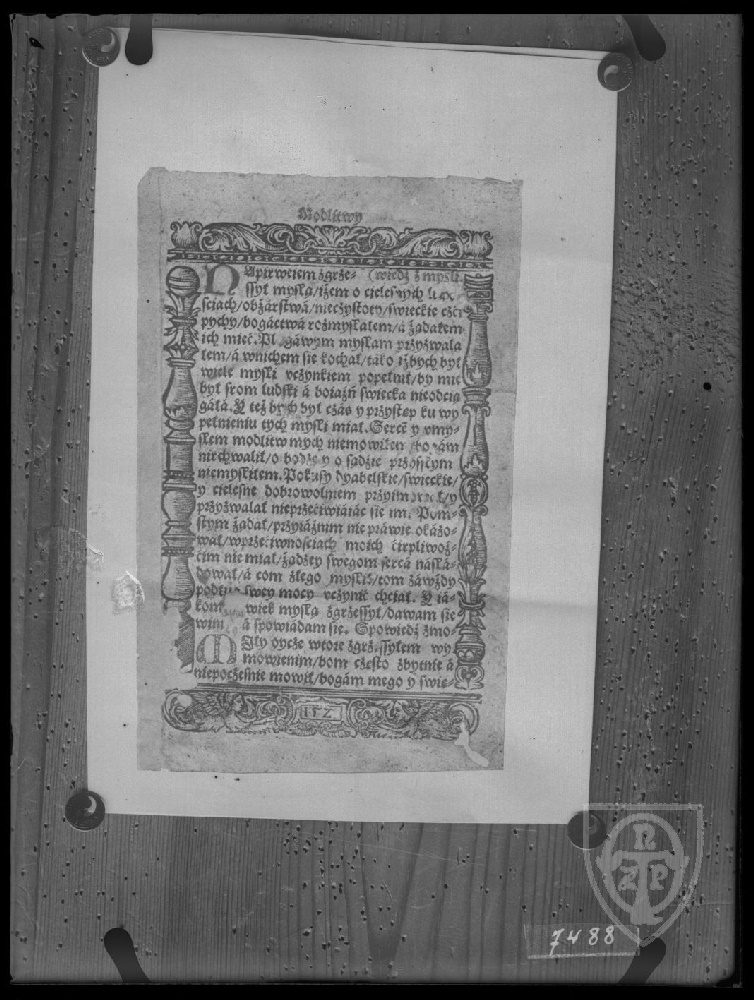 Modlitwy
NApirweiem zgrze- (wiedź z myśli.
ssył myślą/iżem o cielesnych
ściach/obżarstwá/nieczystoty/świeckie czci
pychy/bogáctwá rozmyślałem/á żądałem
ich mieć. myślam przyzwala
łem/á wnichem sie kochał/táko iżbych był
wiele myśli vczynkiem popełnił/by mie
był srom ludski á boiaźń świecka nieodcią
gáłá. Y też bych był czás y przystęp ku wy
pełnieniu tych myśli miał. Sercē y vmy-
słem modlitw mych niemowiłem
niechwalił/o y o sądzie przyszłym
niemyśliłem. Pokusy dyabelskie/świeckie/
y cielesne dobrowolniem przyimował/y
przyzwalał nieprzeciwiáiąc sie im. Pom-
stym żądał/przyiáźnim nie práwie okázo-
wał/wprzeciwnościach moich cirpliwoś-
cim nie miał/żądzey swegom sercá náslá-
dował/á com złego myślił/tom záwżdy
swey mocy vczynić chciał. Y iá-
kom wiek myślą zgrzessył/dawam sie
win á spowiádam sie. Spowiedź zmo-
MIły oycze wtore zgrzessyłem wy
mowienim/bom często zbytnie á
niepoczesnie mowił/bogám mego y świe-
152
7488
NZTP